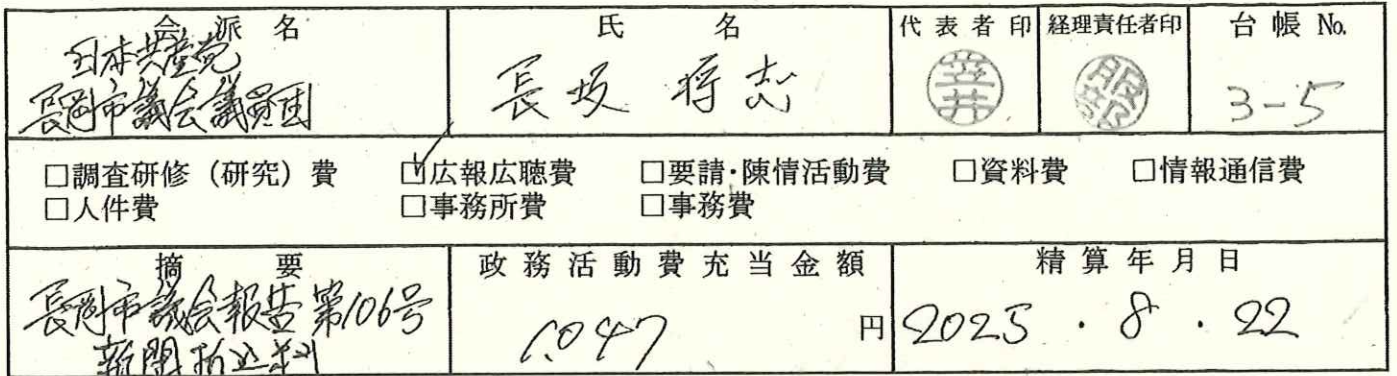 会派名 氏名 代表者印 経理責任者印 台帳No.
日本共産党
長岡市議会議員団 長坂 将志 笠井 服部 3-5
□調査研修(研究)費 ☑広報広聴費 □要請・陳情活動費 □資料費 □情報通信費
□人件費 □事務所費 □事務費
摘要 政務活動費充当金額 精算年月日
長岡市議会報告第106号
新聞折込料 1,047 円 2025.8.22